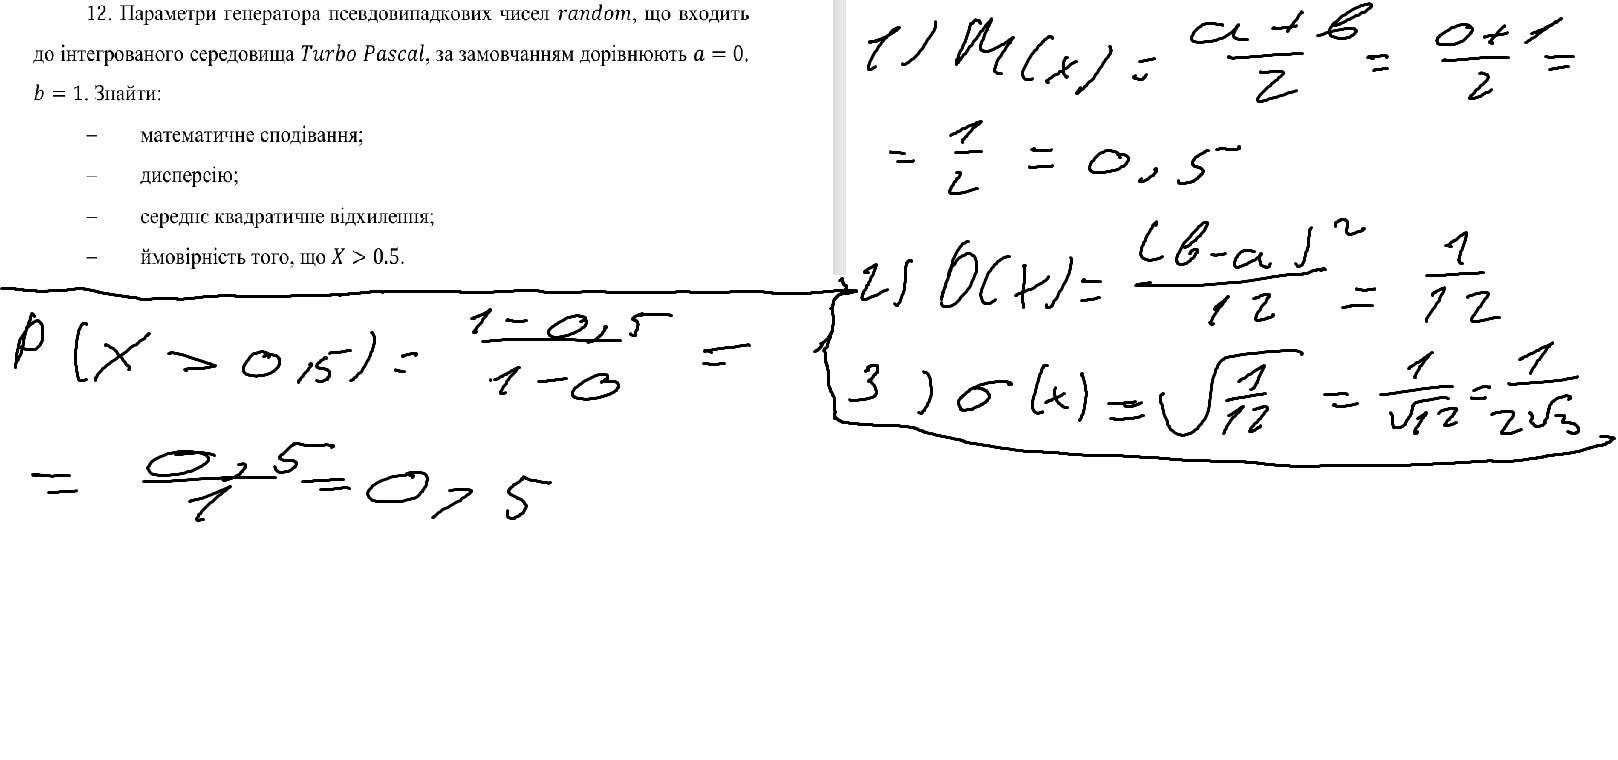 12. Параметри генератора псевдовипадкових чисел random, що входить
до інтегрованого середовища Turbo Pascal, за замовчанням дорівнюють a = 0,
b = 1. Знайти:
– математичне сподівання;
– дисперсію;
– середнє квадратичне відхилення;
– ймовірність того, що X > 0.5.
1) M(x) = (a+b)/2 = (0+1)/2 =
= 1/2 = 0,5
2) D(X) = (b-a)²/12 = 1/12
3) σ(x) = √(1/12) = 1/√12 = 1/(2√3)
P(X > 0,5) = (1-0,5)/(1-0) =
= 0,5/1 = 0,5